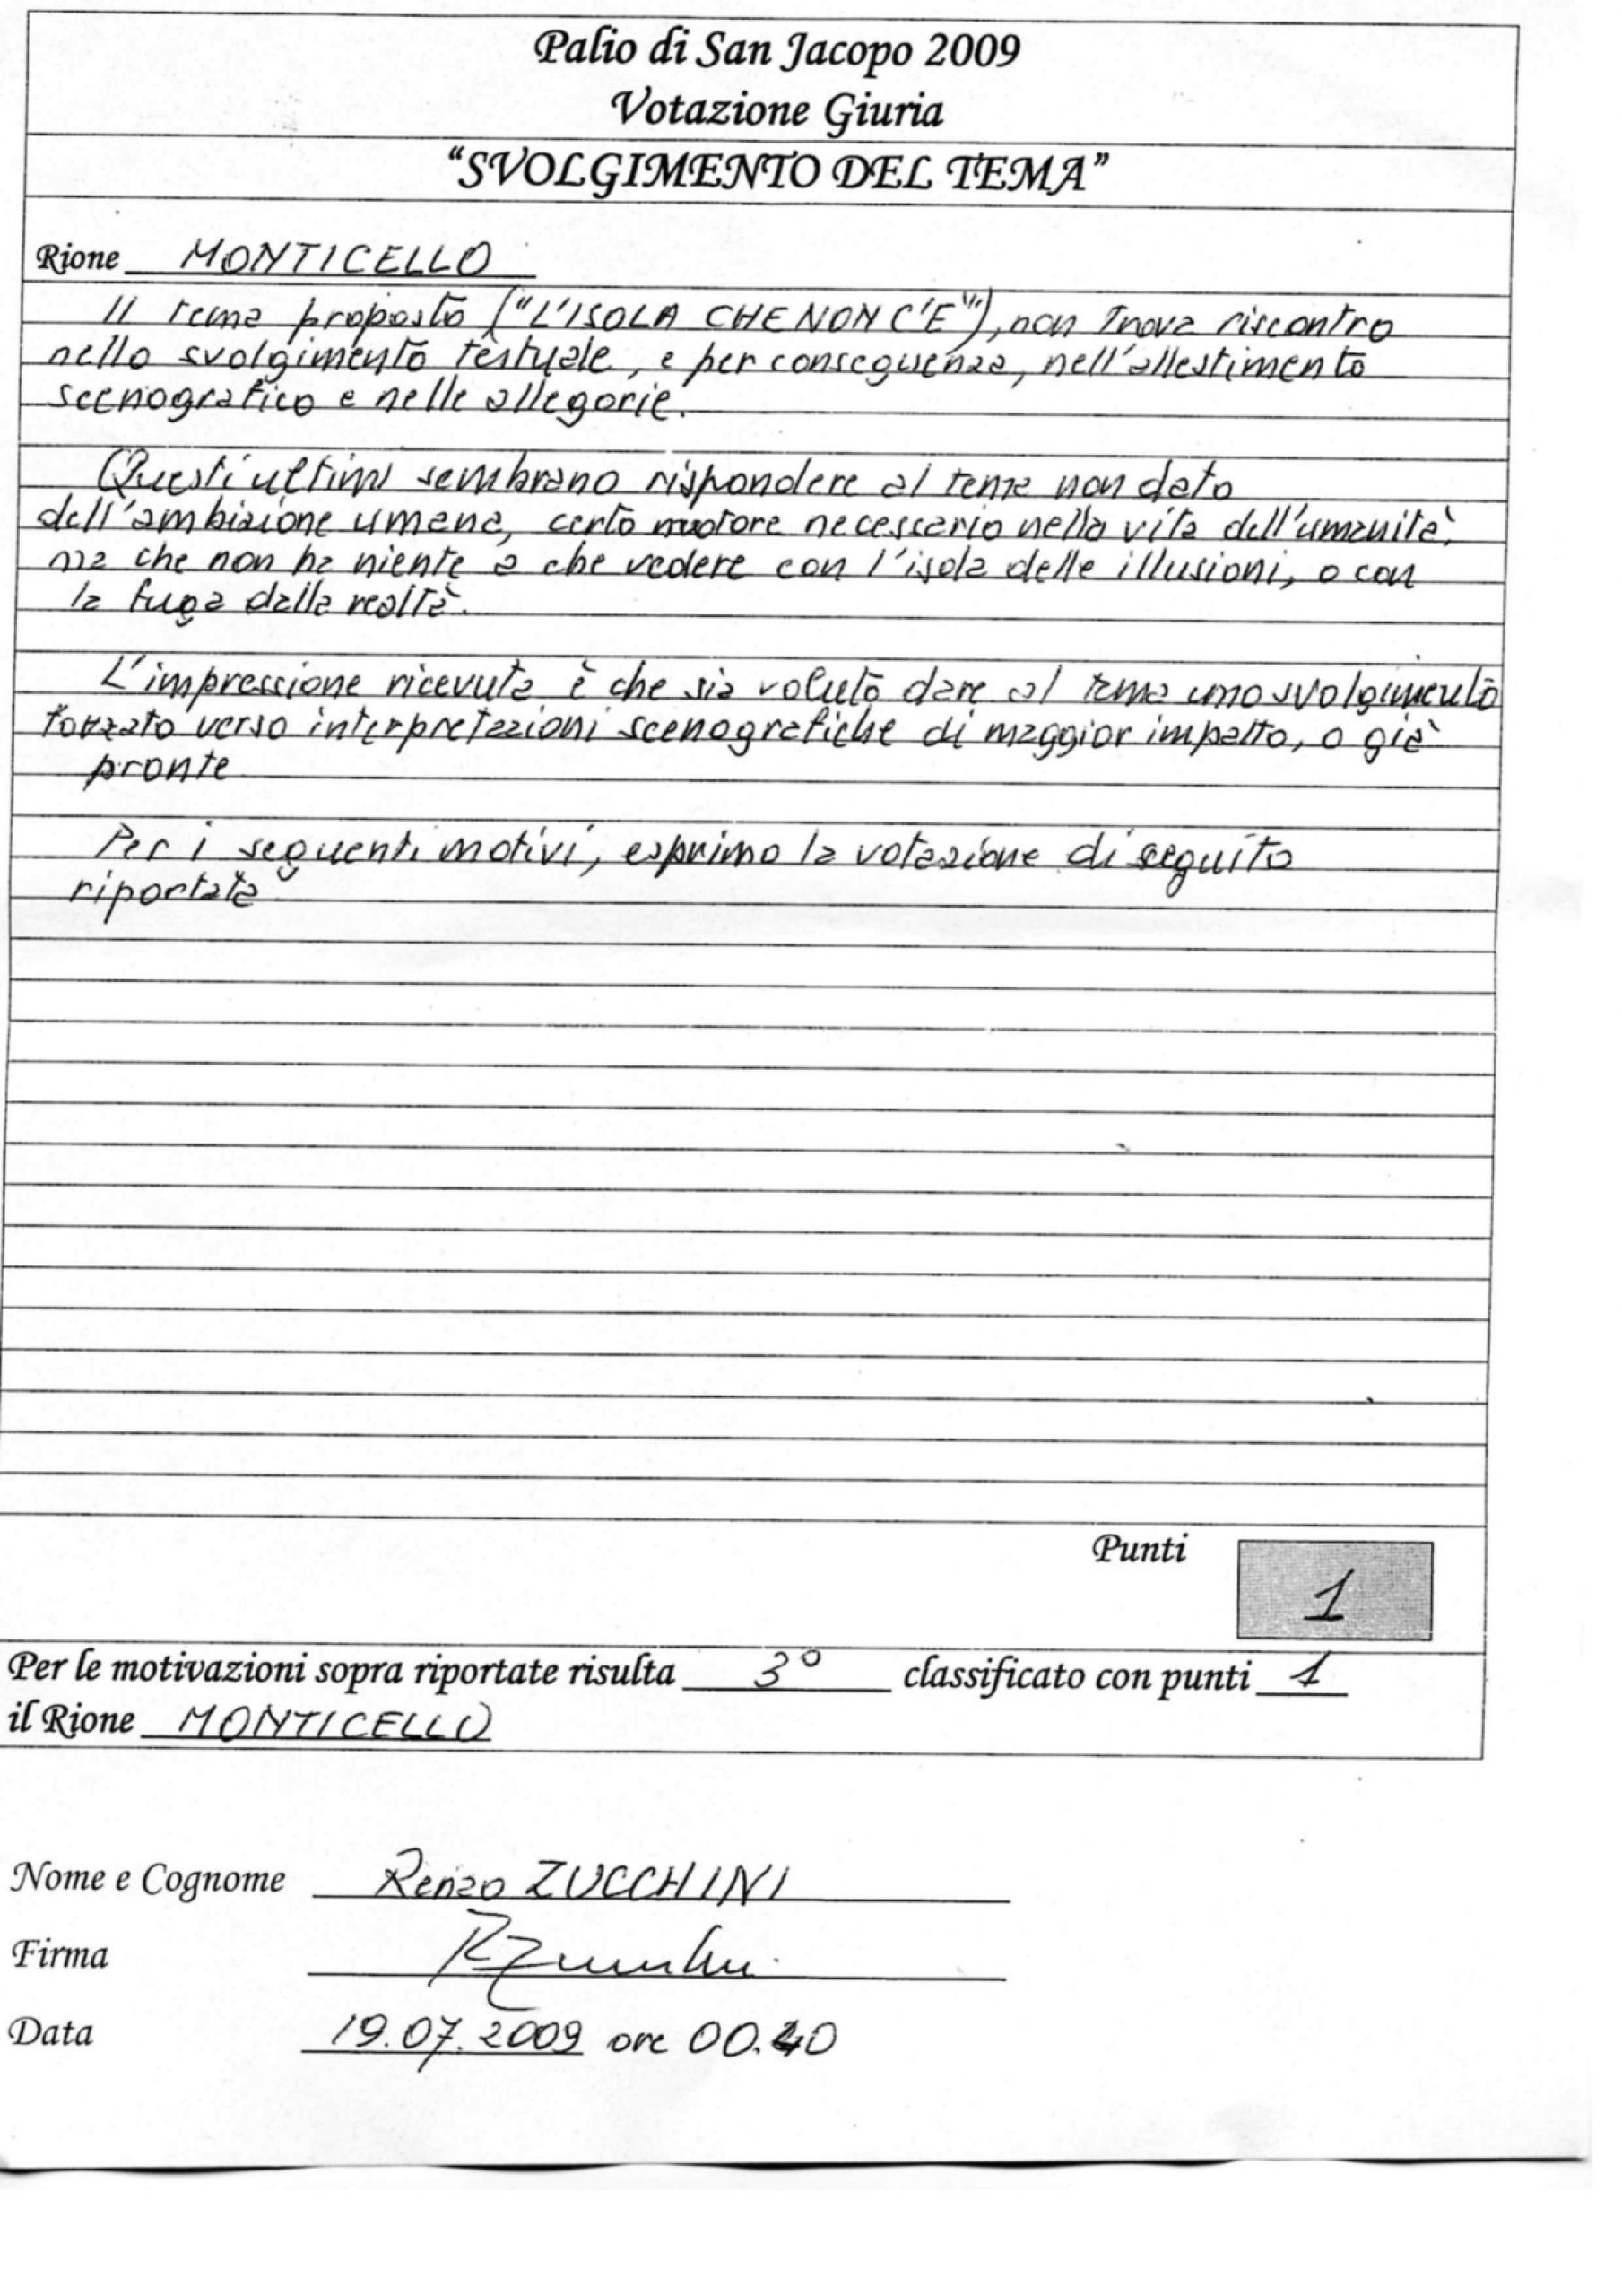 Palio di San Jacopo 2009
Votazione Giuria
"SVOLGIMENTO DEL TEMA"
Rione MONTICELLO
Il tema proposto ("L'ISOLA CHE NON C'E'"), non trova riscontro
nello svolgimento testuale, e per conseguenza, nell'allestimento
scenografico e nelle allegorie.
Questi ultimi sembrano rispondere al tema non dato
dell'ambizione umana, certo motore necessario nella vita dell'umanità,
ma che non ha niente a che vedere con l'isola delle illusioni, o con
la fuga dalla realtà.
L'impressione ricevuta è che sia voluto dare al tema uno svolgimento
forzato verso interpretazioni scenografiche di maggior impatto, o già
pronte
Per i seguenti motivi, esprimo la votazione di seguito
riportata
Punti 1
Per le motivazioni sopra riportate risulta 3° classificato con punti 1
il Rione MONTICELLO
Nome e Cognome Renzo ZUCCHINI
Firma
Data 19.07.2009 ore 00.40